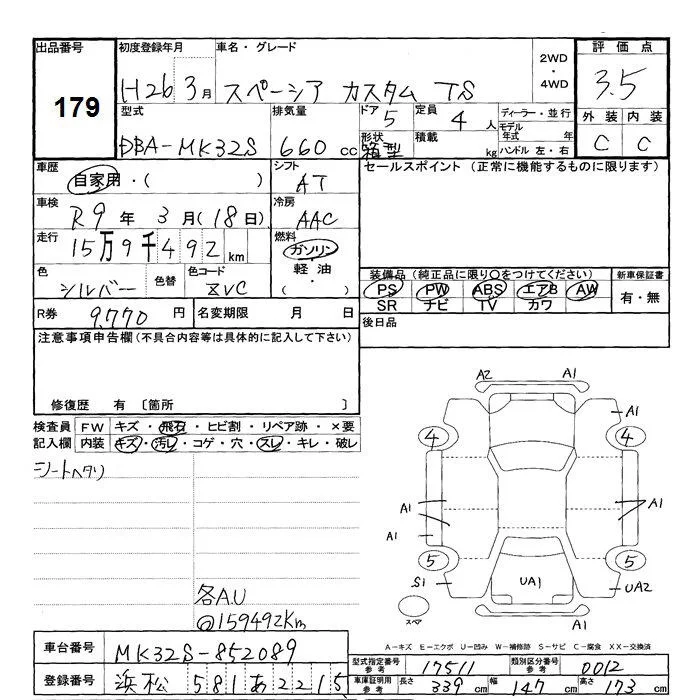 出品番号 初度登録年月 車名・グレード 2WD・4WD 評価点
179 H26 3月 スペーシア カスタム TS 3.5
型式 排気量 ドア 5 定員 4人 ディーラー・並行 外装 内装
DBA-MK32S 660cc 形状 箱型 積載 kg モデル年式 年 ハンドル 左・右 C C
車歴 自家用・( ) シフト AT セールスポイント (正常に機能するものに限ります)
車検 R9年 3月(18日) 冷房 AAC
走行 15万9千492km 燃料 ガソリン 軽油・( )
色 シルバー 色替 色コード ZVC 装備品 (純正品に限り○をつけてください) 新車保証書
PS PW ABS エアB AW 有・無
SR ナビ TV カワ
R券 9,770円 名変期限 月 日 後日品
注意事項申告欄(不具合内容等は具体的に記入して下さい)
修復歴 有 〔箇所 〕
検査員記入欄 FW キズ・飛石・ヒビ割・リペア跡・×要
内装 キズ・汚レ・コゲ・穴・スレ・キレ・破レ
シートヘタリ
各A.U
@159492km
A2 A1
A1
4 4
A1 A1
A1
5 5
S1 UA1 UA2
スペア A1
A-キズ E-エクボ U-凹み W-補修跡 S-サビ C-腐食 XX-交換済
車台番号 MK32S-852089
型式指定番号 参考 17511 類別区分番号 参考 0012
登録番号 浜松 581 あ 2215
車庫証明用 参考 長さ 339cm 幅 147cm 高さ 173cm